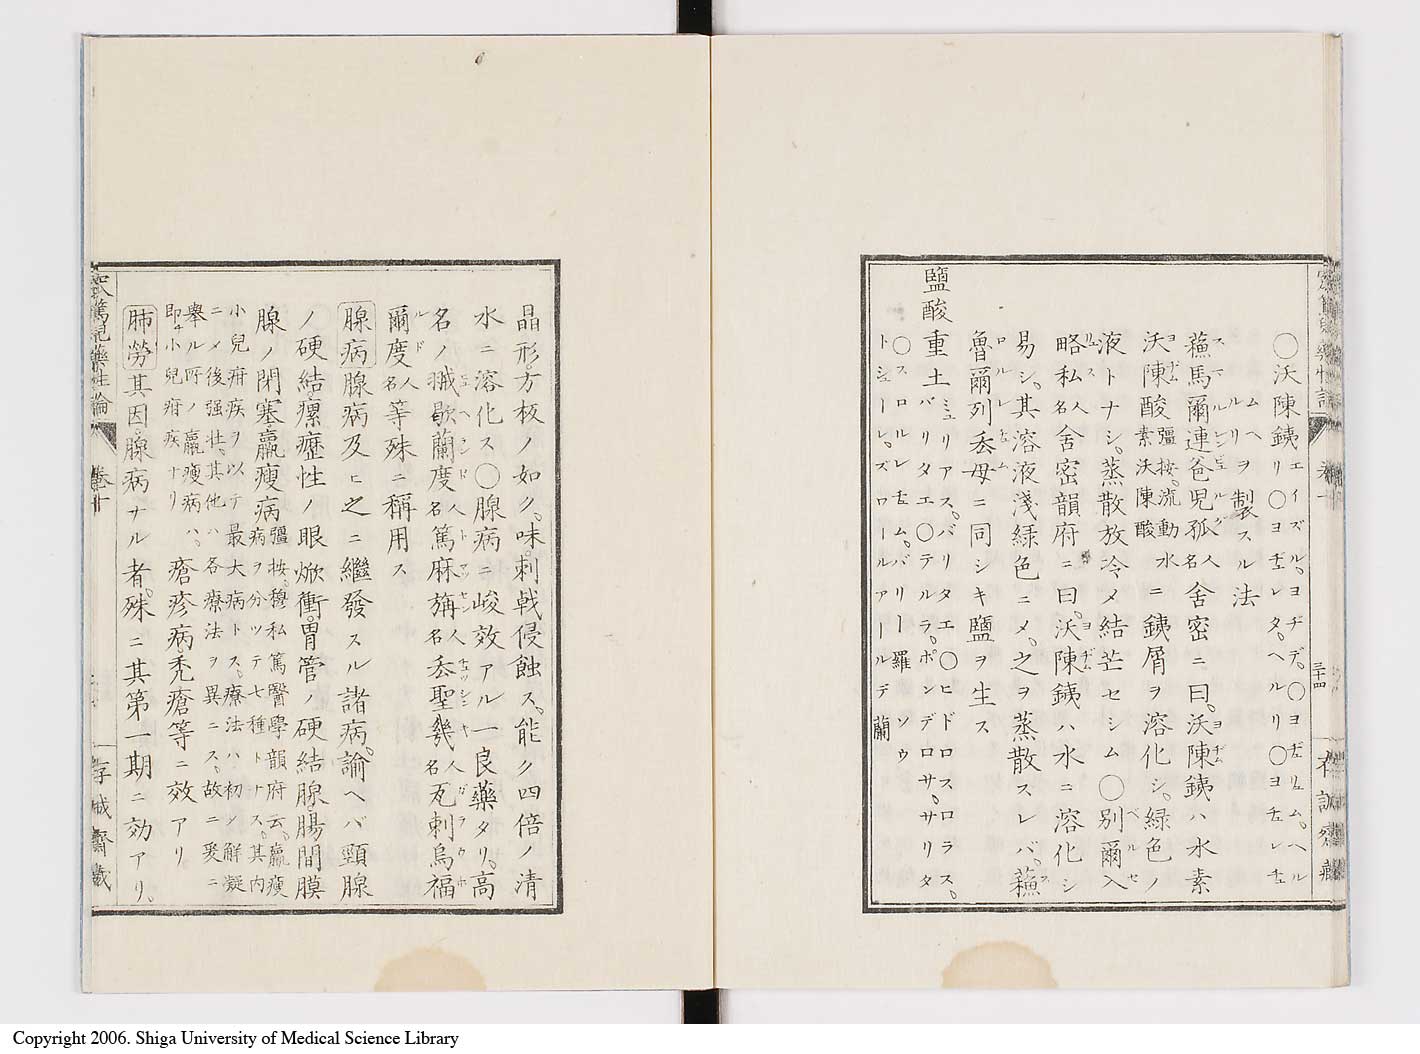 ○沃陳銕エイズル。ヨヂデ。○ヨヂリユム。ヘル
リ○ヨヂレタ。ヘルリ○ヨチレチ
ムヘルリヲ製スル法
蘓馬爾連爸児孤人名舎密ニ曰。沃陳銕ハ水素
沃陳酸彊按。流動水素沃陳酸ニ銕屑ヲ溶化シ。緑色ノ
液トナシ。蒸散放冷メ結芒セシム○別爾入
略私人名舎密韻府ニ曰。沃陳銕ハ水ニ溶化シ
易シ。其溶液淺緑色ニメ。之ヲ蒸散スレバ。蘓
魯爾列叁母ニ同シキ鹽ヲ生ス
鹽酸重土ミュリアス。バリタエ○ヒドロスロラス。
バリタエ○テルラ。ポンデロサ。サリタ
○スロルレウム。バリー羅ソウ
トシュール。ズロールアールデ蘭
晶形。方板ノ如ク。味。刺戟侵蝕ス。能ク四倍ノ清
水ニ溶化ス○腺病ニ峻效アル一良藥タリ。高
名ノ㧡歇蘭度人名篤麻旃人名叁聖幾人名瓦刺烏福
爾度人名等殊ニ稱用ス
腺病 腺病及ヒ之ニ繼發スル諸病。諭ヘバ頸腺
ノ硬結。瘰癧性ノ眼焮衝。胃管ノ硬結腺。腸間膜
腺ノ閉塞。羸瘦病彊按。穆私篤醫學韻府云。羸瘦病ヲ分ツテ七種トナス。其内
小兒疳疾ヲ以テ最大病トス。療法ハ初メ解凝
ニメ後强壮。其他ハ各療法ヲ異ニス。故ニ爰ニ
擧ル所ノ羸瘦病ハ。即チ小兒疳疾ナリ 瘡疹病禿瘡等ニ效アリ
肺勞 其因。腺病ナル者。殊ニ其第一期ニ効アリ。
窊篤児藥性論
卷十
三十四
存誠齋藏
Copyright 2006. Shiga University of Medical Science Library